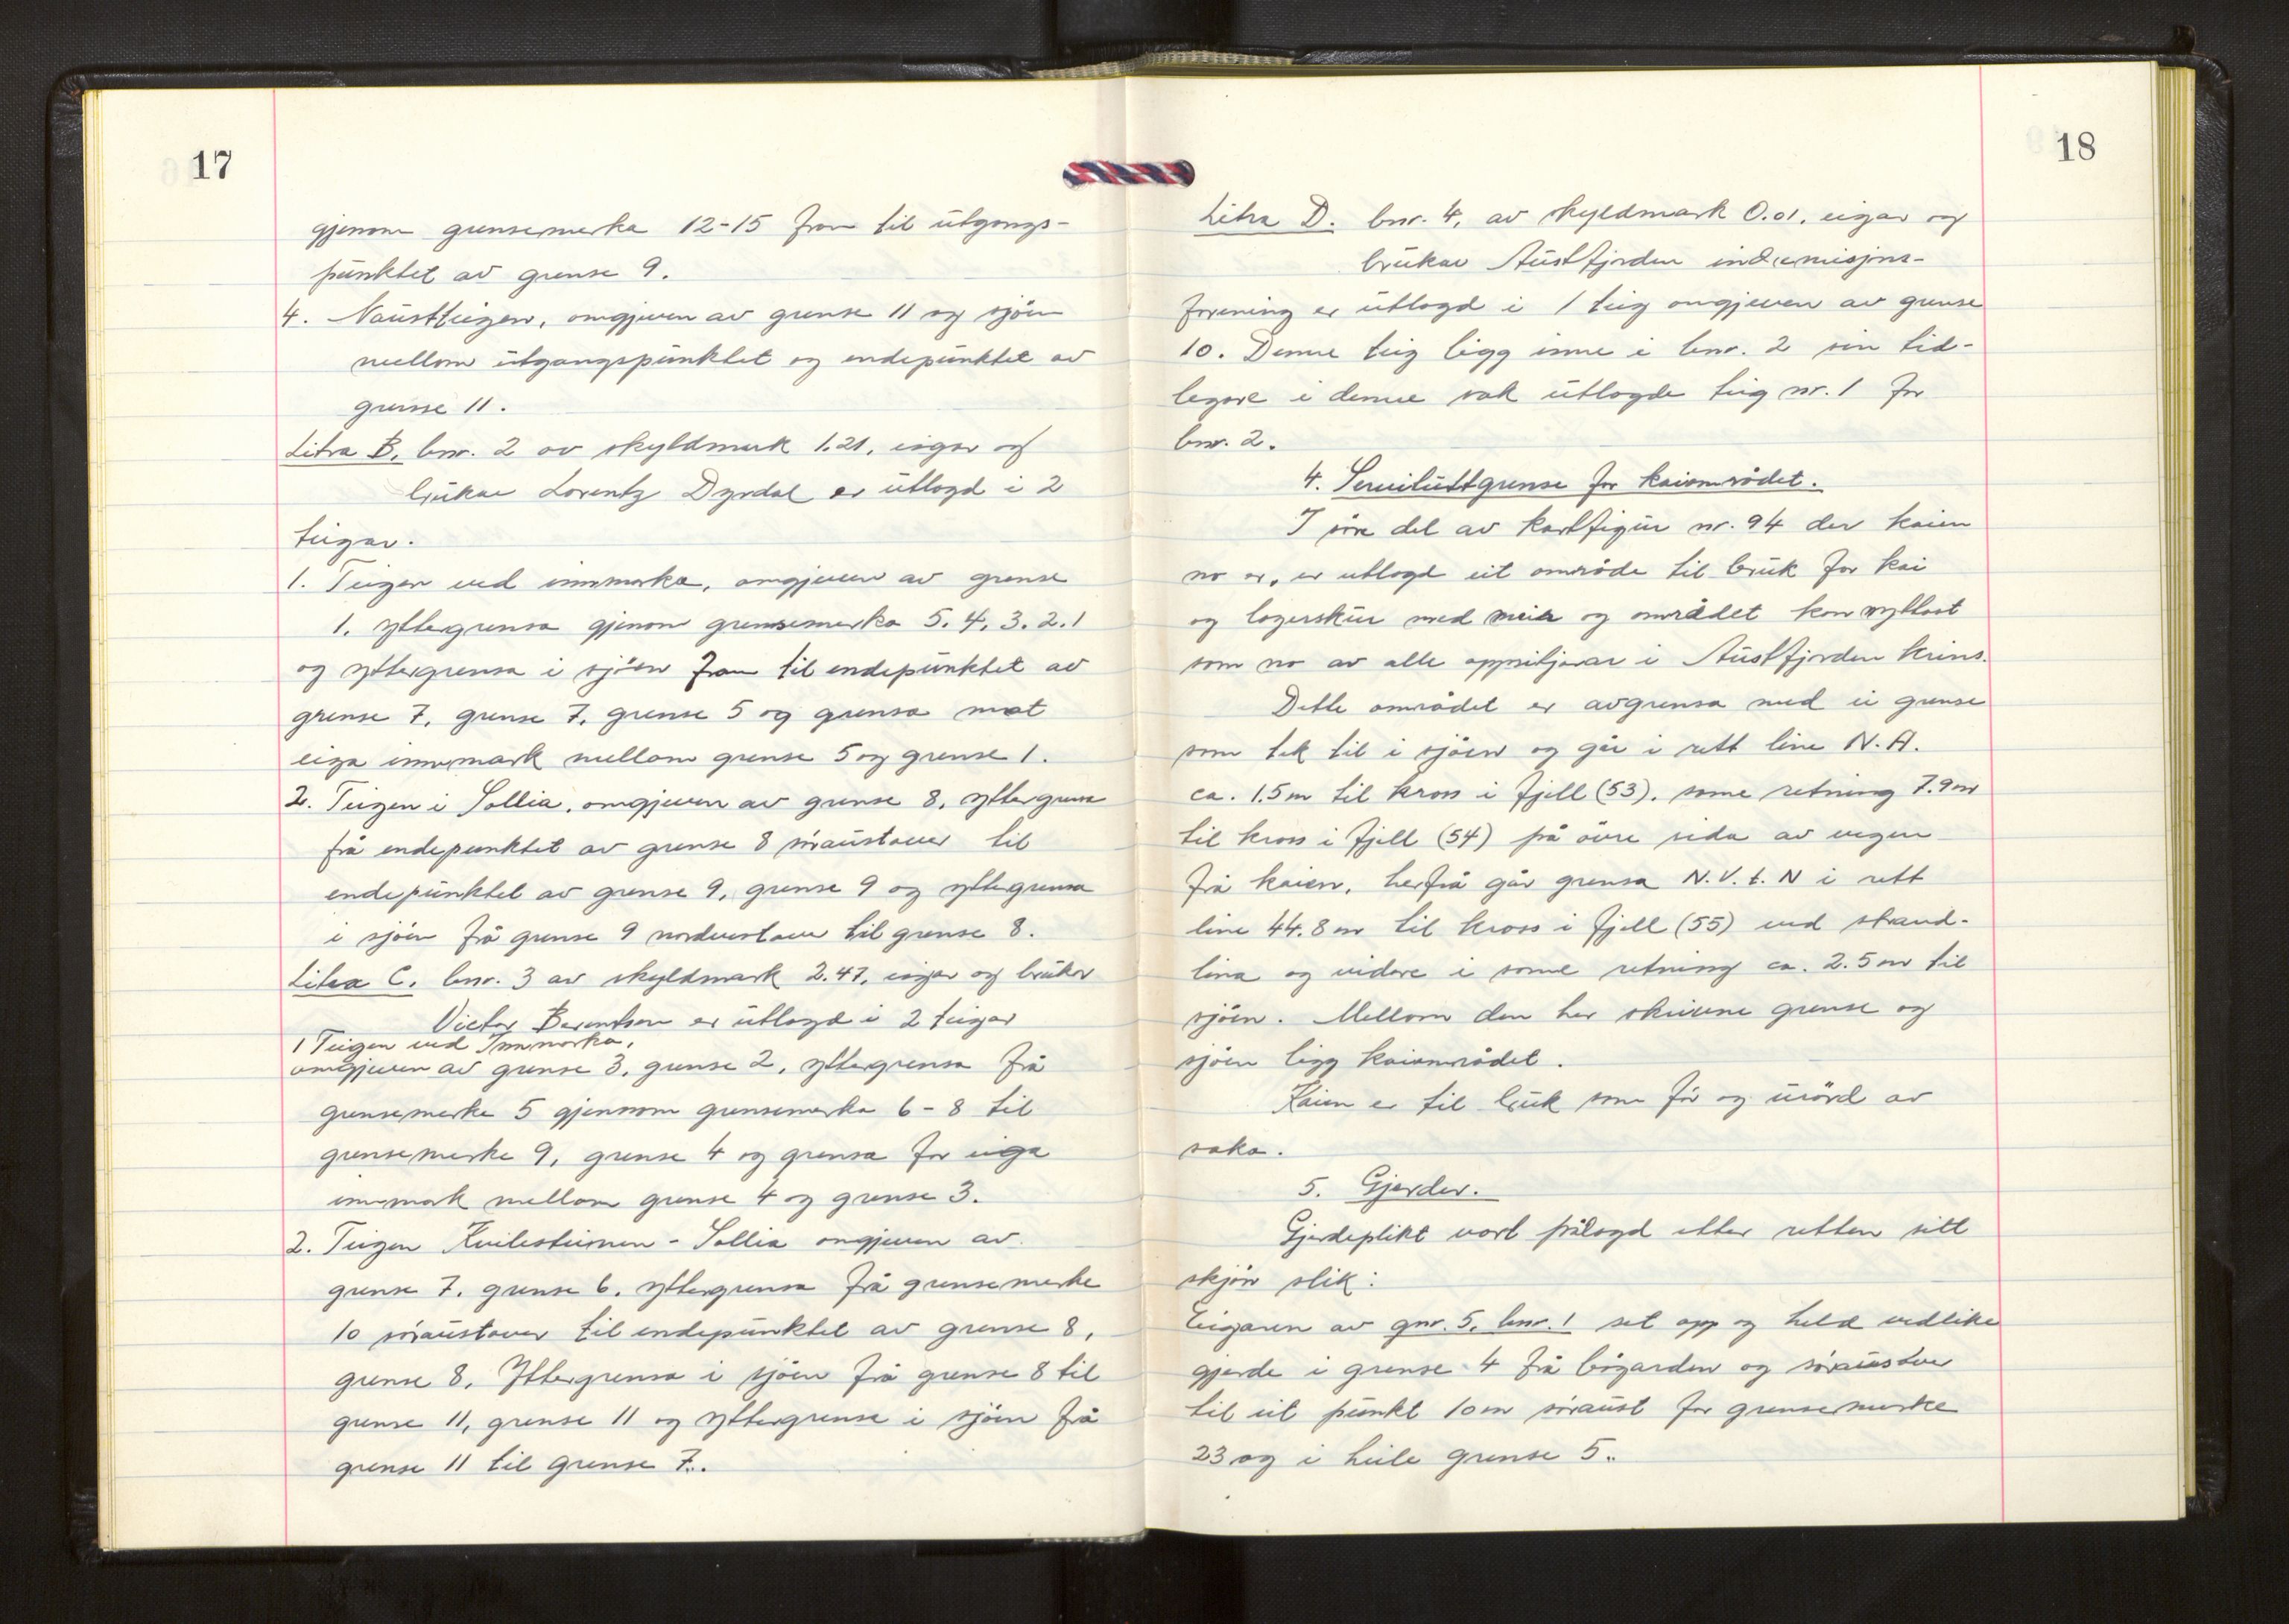 17
gjenom grensemerka 12-15 fram til utgangs-
punktet av grense 9.
4. Naustteigen, omgjeven av grense 11 og sjöen
mellom utgangspunktet og endepunktet av
grense 11.
Litra B. bnr. 2 av skyldmark 1.21, eigar og
brukar Lorentz Dyrdal er utlagd i 2
teigar.
1. Teigen ved innmarka, omgjeven av grense
1. yttergrensa gjenom grensemerka 5. 4. 3. 2. 1
og yttergrensa i sjöen fram til endepunktet av
grense 7, grense 7, grense 5 og grensa mot
eiga innmark mellom grense 5 og grense 1.
2. Teigen i Sollia, omgjeven av grense 8, yttergrensa
frå endepunktet av grense 8 söraustover til
endepunktet av grense 9, grense 9 og yttergrensa
i sjöen frå grense 9 nordvestover til grense 8.
Litra C. bnr. 3 av skyldmark 2.47, eigar og brukar
Victor Berentsen er utlagd i 2 teigar
1 Teigen ved Innmarka,
omgjeven av grense 3, grense 2, yttergrensa frå
grensemerke 5 gjennom grensemerka 6-8 til
grensemerke 9, grense 4 og grensa for eiga
innmark mellom grense 4 og grense 3.
2. Teigen Kvilesteinen - Sollia omgjeven av
grense 7, grense 6, yttergrensa frå grensemerke
10 söraustover til endepunktet av grense 8,
grense 8, Yttergrensa i sjöen frå grense 8 til
grense 11, grense 11 og yttergrense i sjöen frå
grense 11 til grense 7.
18
Litra D. bnr. 4, av skyldmark 0.01, eigar og
brukar Austfjorden indremisjons-
forening er utlagd i 1 teig omgjeven av grense
10. Denne teig ligg inne i bnr. 2 sin tid-
legare i denne sak utlagde teig nr. 1 for
bnr. 2.
4. Servituttgrense for kaiområdet.
I söre del av kartfigur nr. 94 der kaien
no er, er utlagd eit område til bruk for kai
og lagerskur med meir og området kan nyttast
som no av alle oppsitjarar i Austfjorden krins.
Dette området er avgrensa med ei grense
som tek til i sjöen og går i rett line N.A.
ca. 1.5 m til kross i fjell (53), same retning 7.9 m
til kross i fjell (54) på övre sida av vegen
frå kaien, herfrå går grensa N.V.t.N i rett
line 44.8 m til kross i fjell (55) ved strand-
lina og vidare i same retning ca. 2.5 m til
sjöen. Mellom den her skrivne grense og
sjöen ligg kaiområdet.
Kaien er til bruk som för og urörd av
saka.
5. Gjerder.
Gjerdeplikt vart pålagd etter retten sitt
skjön slik:
Eigaren av gnr. 5, bnr. 1 set opp og held vedlike
gjerde i grense 4 frå bögarden og söraustover
til eit punkt 10 m söraust for grensemerke
23 og i heile grense 5.